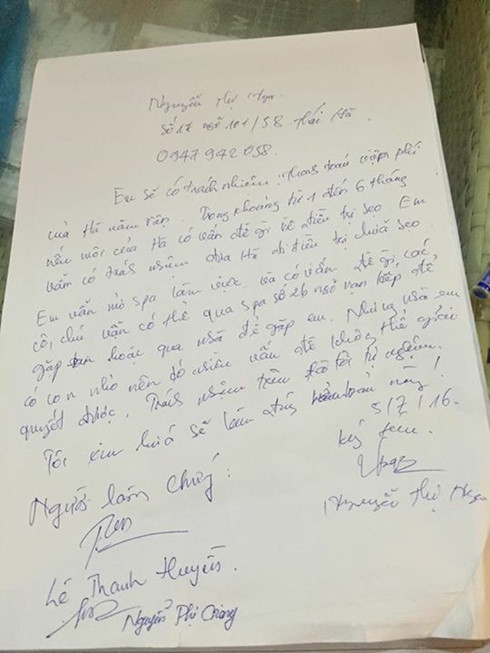 Nguyễn Thị Nga.
Số 17 ngõ 101/58 Thái Hà.
0947942058.
Em sẽ có trách nhiệm thanh toán viện phí
của Hà nằm viện. Trong khoảng từ 1 đến 6 tháng
nếu môi của Hà có vấn đề gì về điều trị sẹo Em
vẫn có trách nhiệm đưa Hà đi điều trị chữa sẹo.
Em vẫn mở spa làm việc và có vấn đề gì, các,
cô, chú vẫn có thể qua spa số 26 ngõ vạn kiếp để
gặp hoặc qua nhà để gặp em. Nhưng nhà em
có con nhỏ nên có nhiều vấn đề không thể giải
quyết được. Trách nhiệm trên
Tôi xin hứa sẽ làm đúng bản này!
5/7/16.
ký tên.
Người làm chứng:
Nguyễn Thị Nga
Lê Thanh Huyền.
Nguyễn Phi Giang